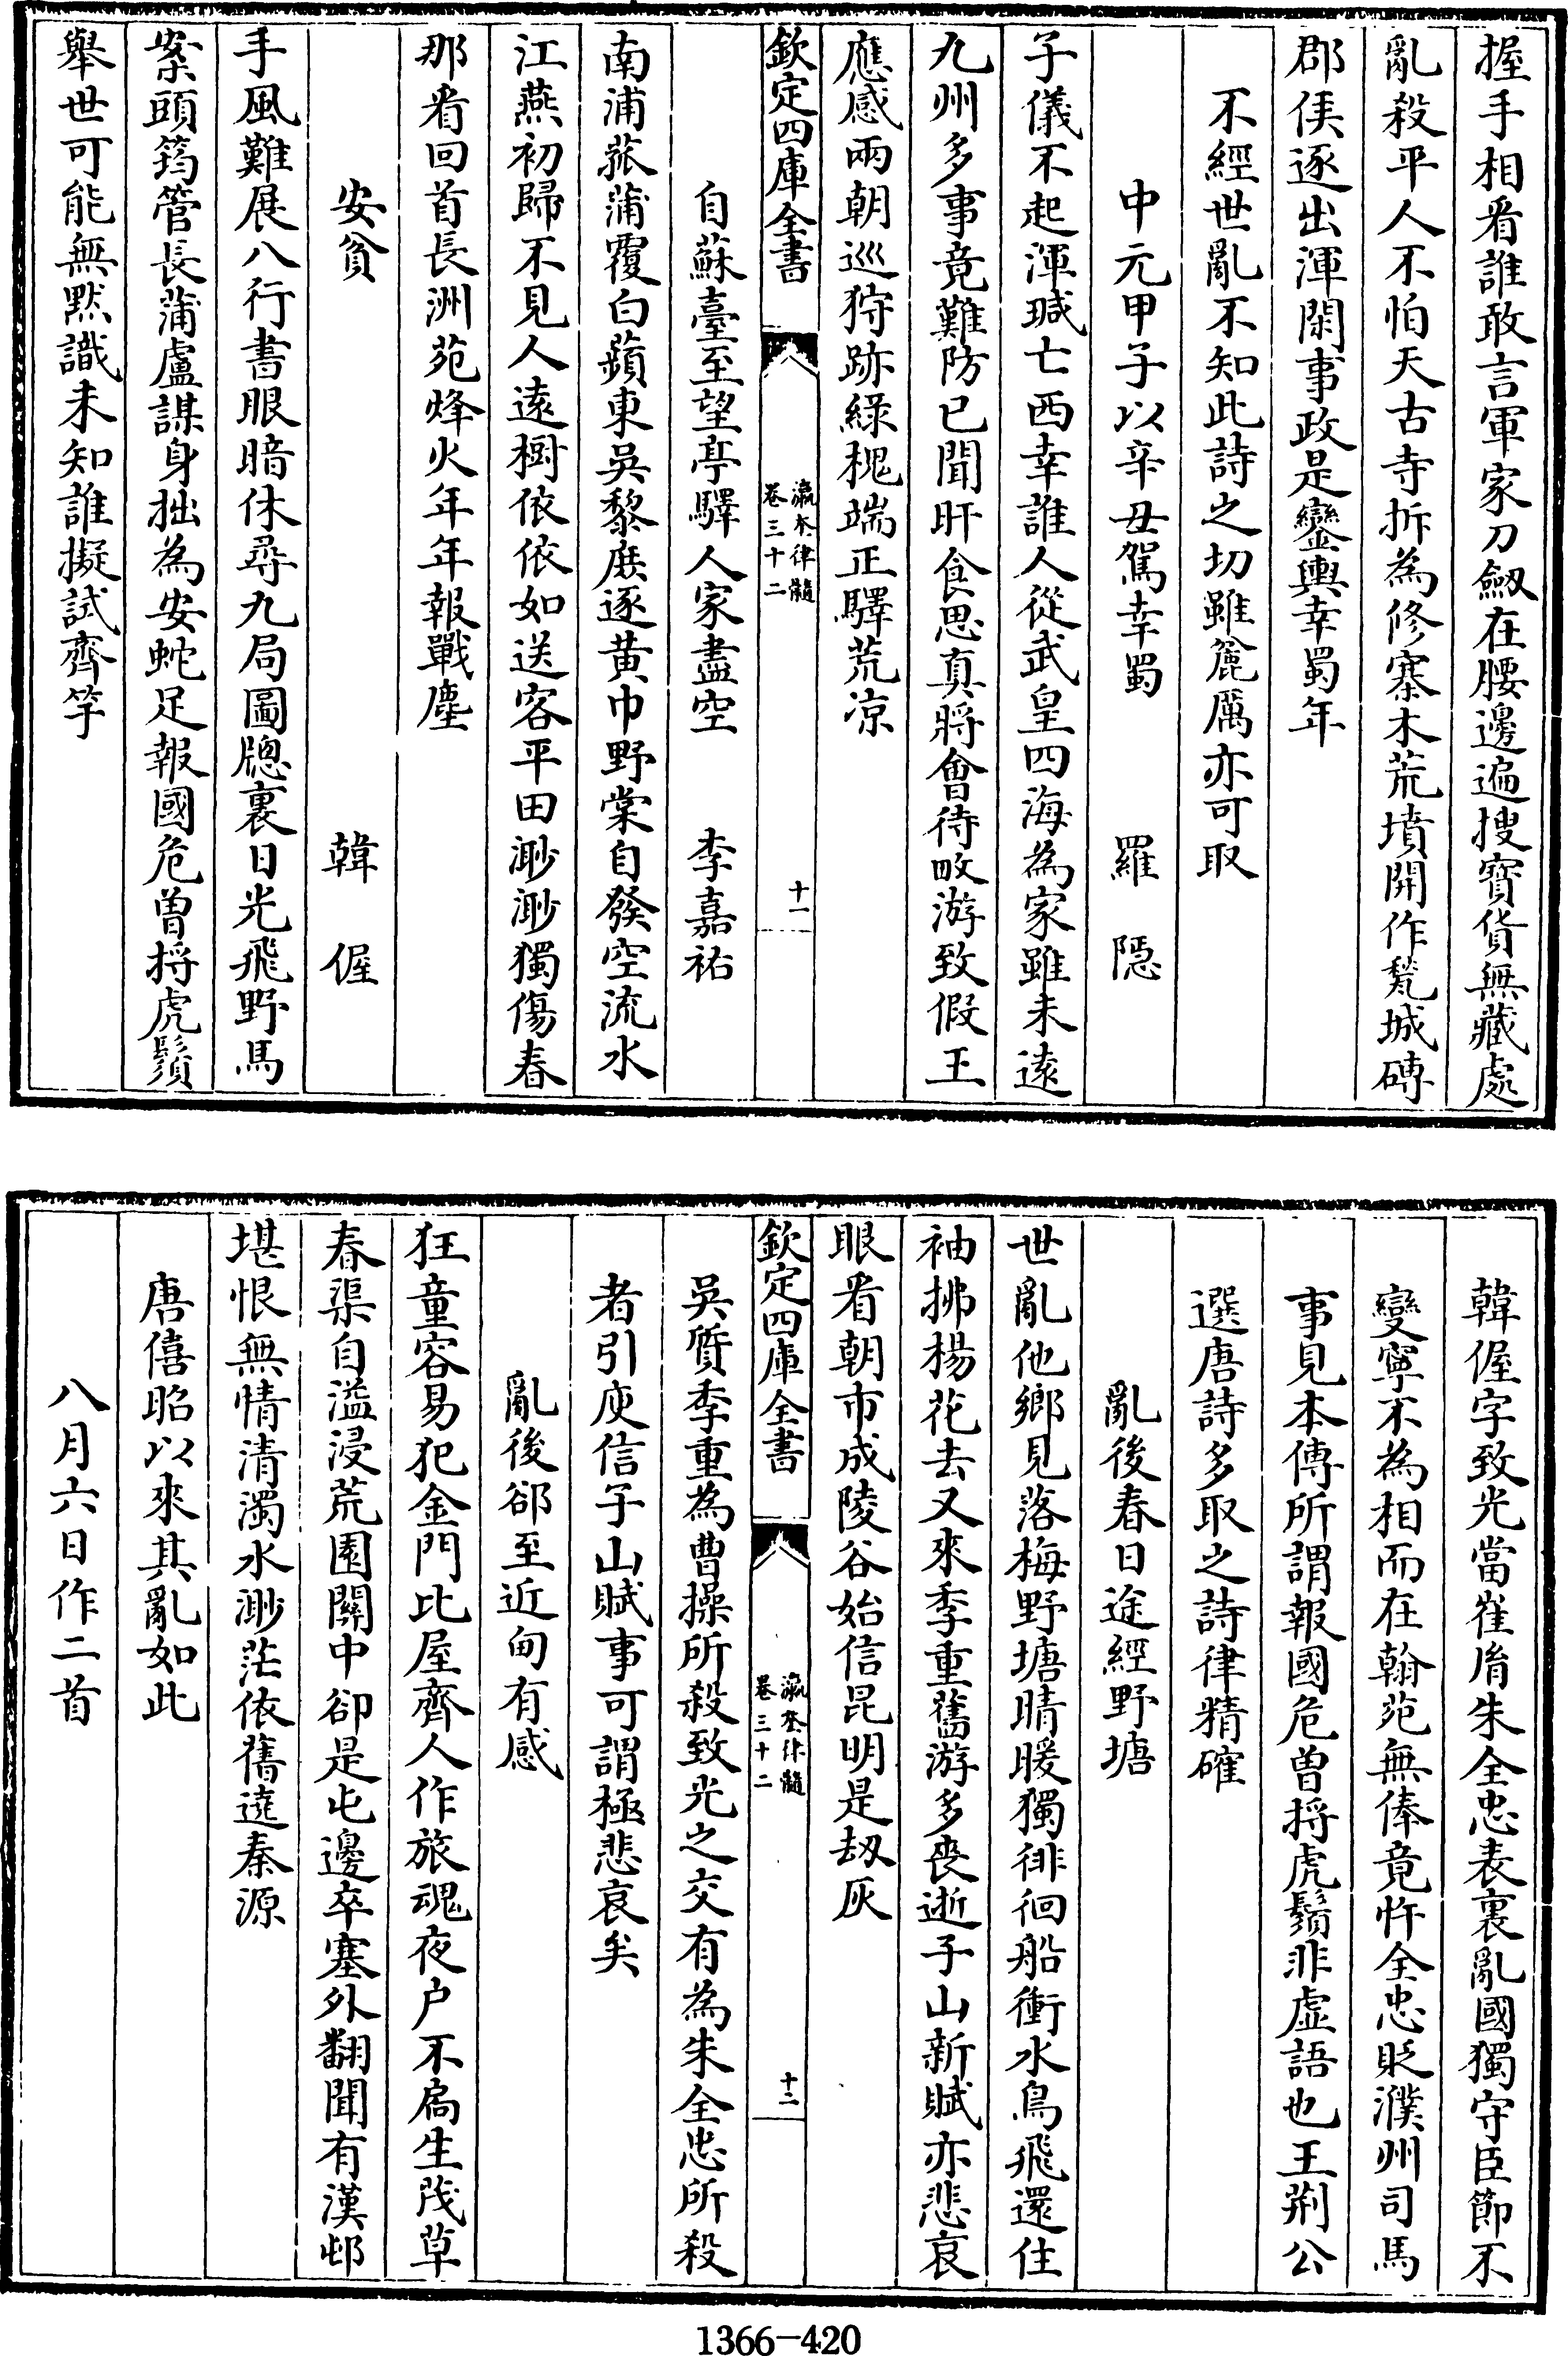 握手相看誰敢言軍家刀劔在腰邊遍搜寳貨無藏處
亂殺平人不怕天古寺拆為修寨木荒墳開作甃城磚
郡侯逐出渾閑事政是鑾輿幸蜀年
不經世亂不知此詩之切雖麄厲亦可取
中元甲子以辛丑駕幸蜀　羅隠
子儀不起渾瑊亡西幸誰人從武皇四海為家雖未逺
九州多事竟難防已聞旰食思真將㑹待畋游致假王
應感兩朝巡狩跡緑槐端正驛荒凉
欽定四庫全書
瀛奎律髓
卷三十二
十一
自蘇臺至望亭驛人家盡空　李嘉祐
南浦菰蒲覆白蘋東吳黎庶逐黄巾野棠自發空流水
江燕初歸不見人逺樹依依如送客平田渺渺獨傷春
那㸔回首長洲苑烽火年年報戰塵
安貧　韓偓
手風難展八行書眼暗休尋九局圖牎裏日光飛野馬
案頭筠管長蒲盧謀身拙為安蛇足報國危曽捋虎鬚
舉世可能無黙識未知誰擬試齊竽
韓偓字致光當崔𦙍朱全忠表裏亂國獨守臣節不
變寧不為相而在翰苑無俸竟忤全忠貶濮州司馬
事見本傳所謂報國危曽捋虎鬚非虚語也王荆公
選唐詩多取之詩律精確
亂後春日途經野塘
世亂他鄉見落梅野塘晴暖獨徘徊船衝水鳥飛還住
袖拂楊花去又來季重舊游多喪逝子山新賦亦悲哀
眼㸔朝市成陵谷始信昆明是刼灰
欽定四庫全書
瀛奎律髓
卷三十二
十二
吳質季重為曹操所殺致光之交有為朱全忠所殺
者引庾信子山賦事可謂極悲哀矣
亂後郤至近甸有感
狂童容易犯金門比屋齊人作旅魂夜户不扃生茂草
春渠自溢浸荒園關中卻是屯邊卒塞外翻聞有漢邨
堪恨無情清濁水渺茫依舊遶秦源
唐僖昭以來其亂如此
八月六日作二首
1366-420